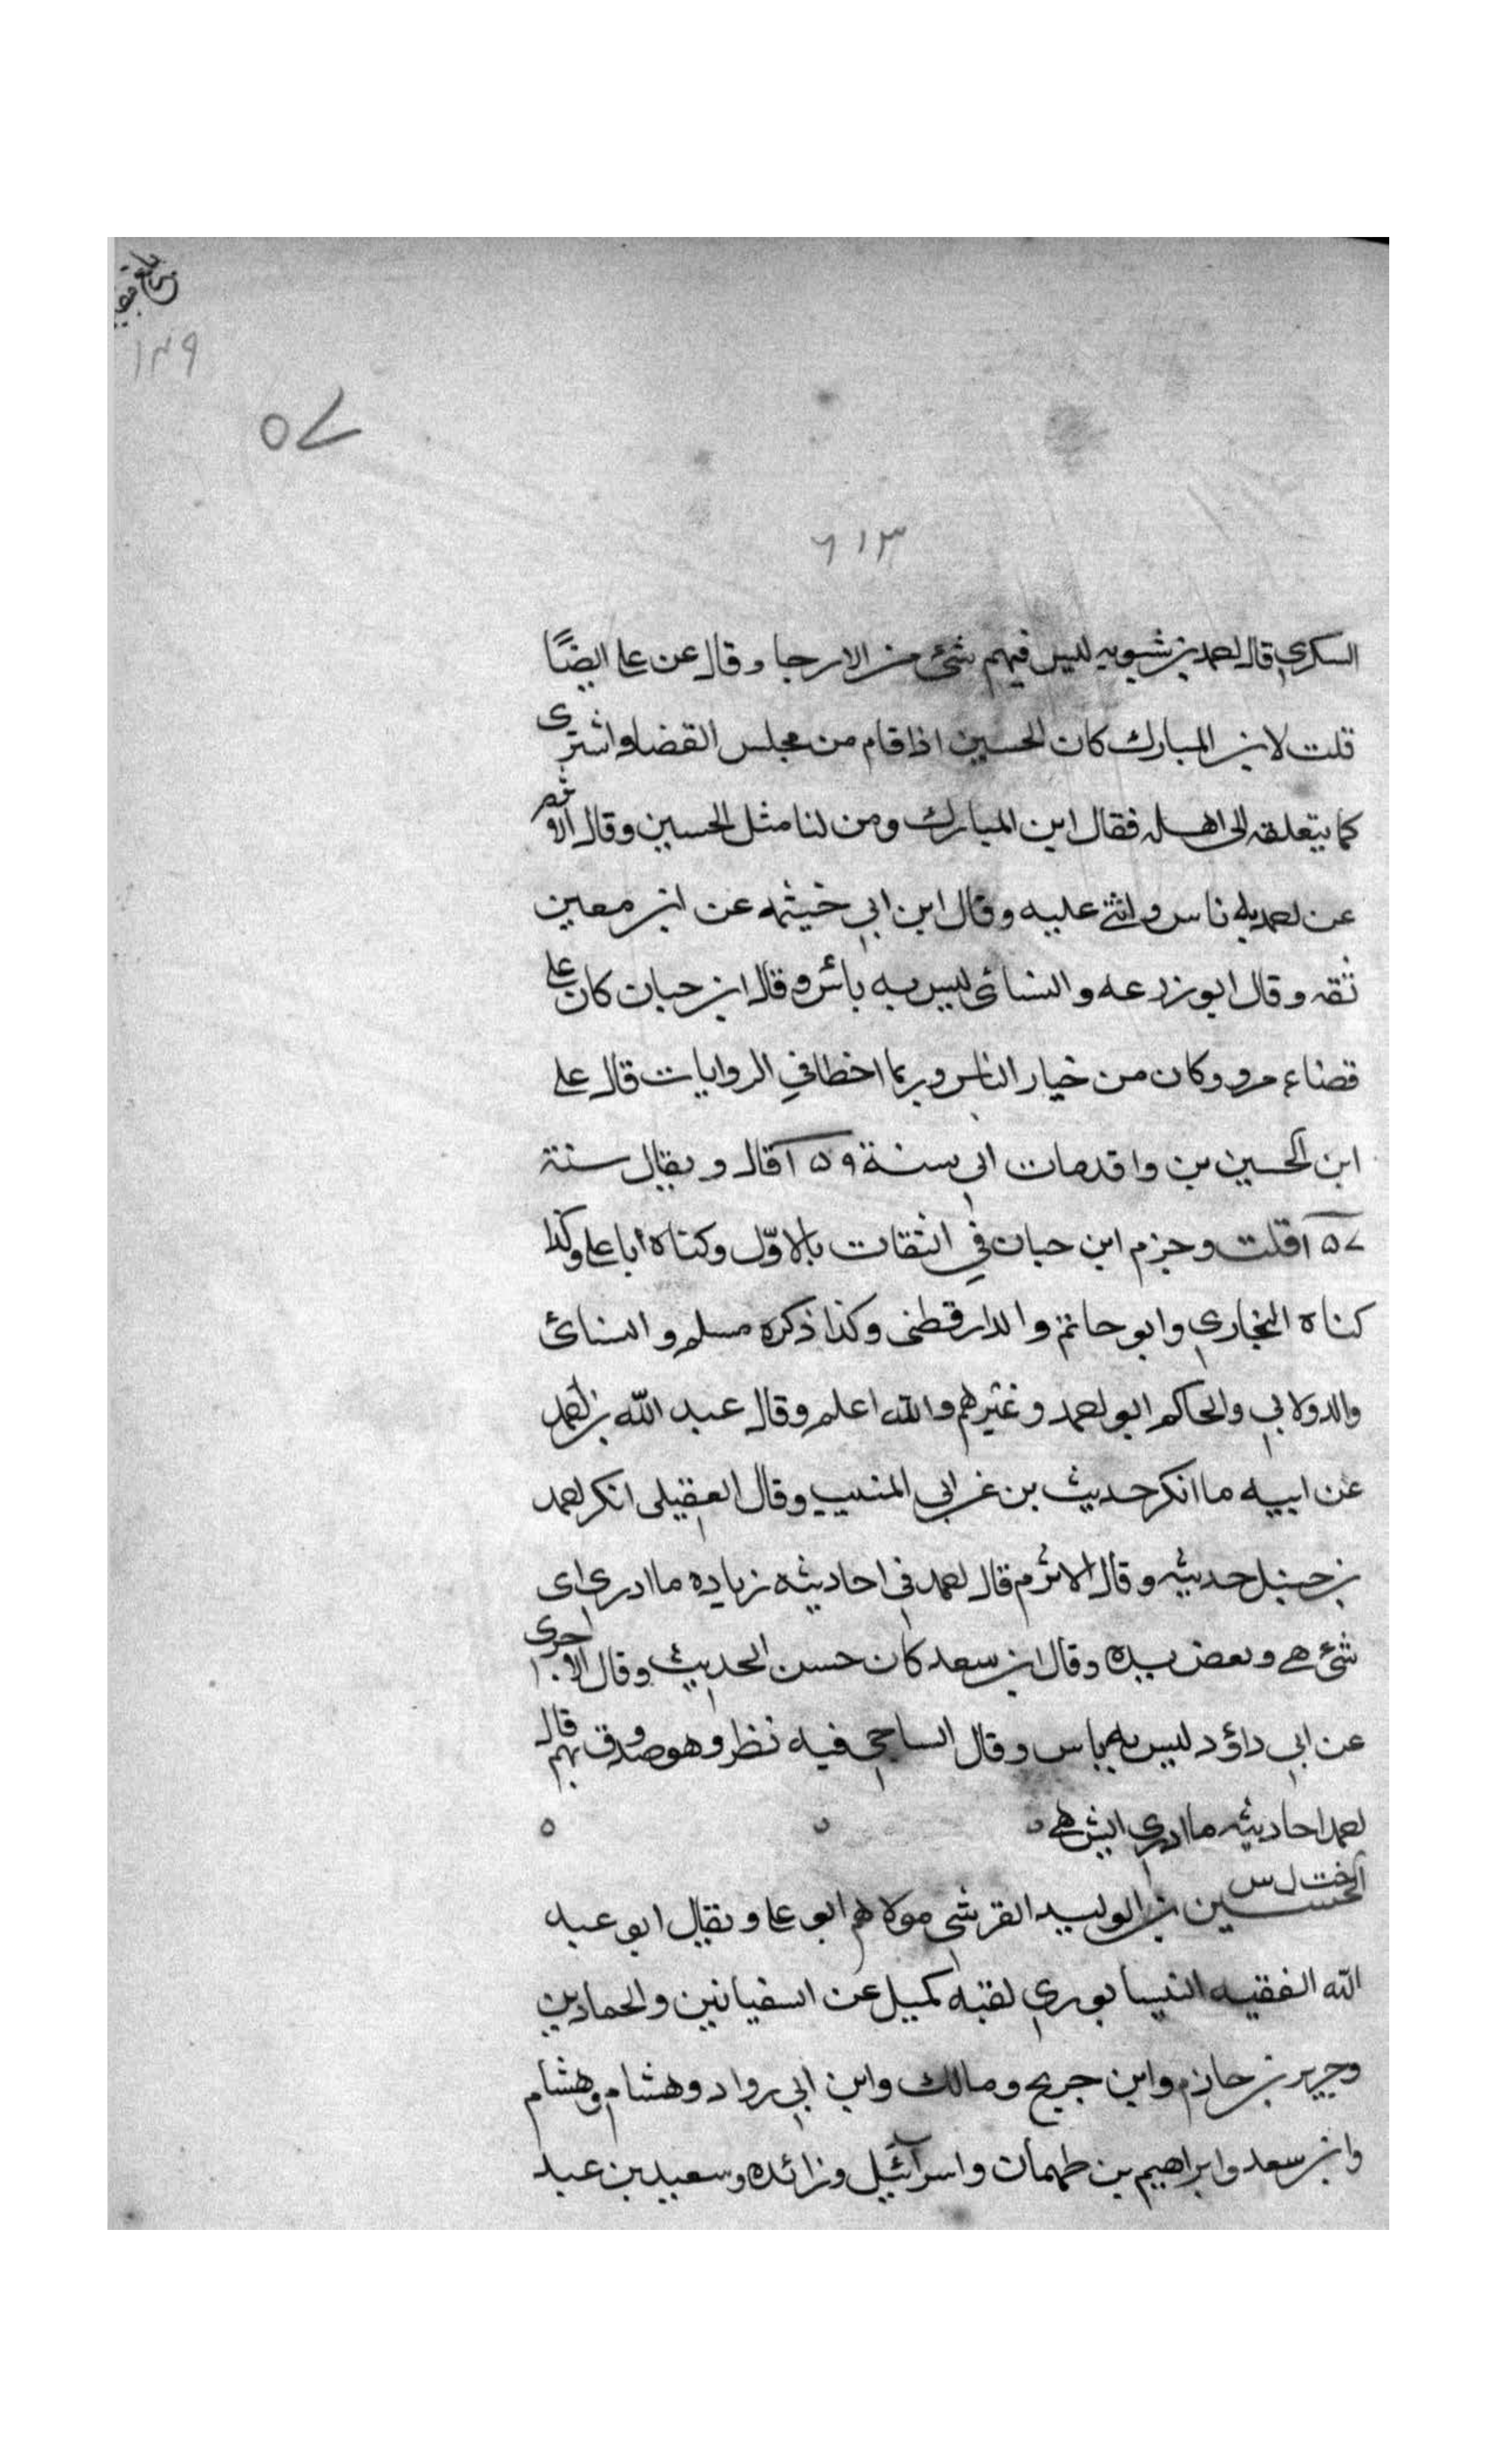 ١٤٩
٥٧
٦١٣
السكري قال احمد بن شبويه ليس فيهم شئ من الارجا وقال عن على ايضًا
قلت لابن المبارك كان الحسين اذا قام من مجلس القضا واشترى
كما يتعلقه الى اهله فقال ابن المبارك ومن لنا مثل الحسين وقال الاثرم
عن احمد به ناس واثنى عليه وقال ابن ابي خيثمه عن ابن معين
ثقه وقال ابو زرعه والنسائى ليس به بأس وقال ابن حبان كان على
قضاء مرو وكان من خيار الناس وربما اخطا في الروايات قال على
ابن الحسين بن واقد مات ابى سنة ١٥٩ قال ويقال سنة
١٥٧ قلت وجزم ابن حبان في الثقات بالاوّل وكناه ابا على وكذا
كناه البخاري وابو حاتم والدارقطنى وكذا ذكره مسلم والنسائ
والدولابي والحاكم ابو احمد وغيرهم والله اعلم وقال عبد الله بن احمد
عن ابيه ما انكر حديث بن عن ابي المنيب وقال العقيلى انكر احمد
بن حنبل حديثه وقال الاثرم قال احمد فى احاديثه زياده ما ادرى اى
شئ هى ونعض يده وقال ابن سعد كان حسن الحديث وقال الاجرى
عن ابي داؤد ليس به باس وقال الساجى فيه نظر وهو صدوق يهم قال
احمد احاديثه ما ادري ايش هى ٥ ٥ ٥
خت ل س
الحسين بن الوليد القرشى مولاهم ابو على ويقال ابو عبد
الله الفقيه النيسابوري لقبه كميل عن السفيانين والحمادين
وجرير بن حازم وابن جريج ومالك وابن ابي رواد وهشام وهشام
وابن سعد وابراهيم بن طهمان واسرائيل وزائده وسعيد بن عبد